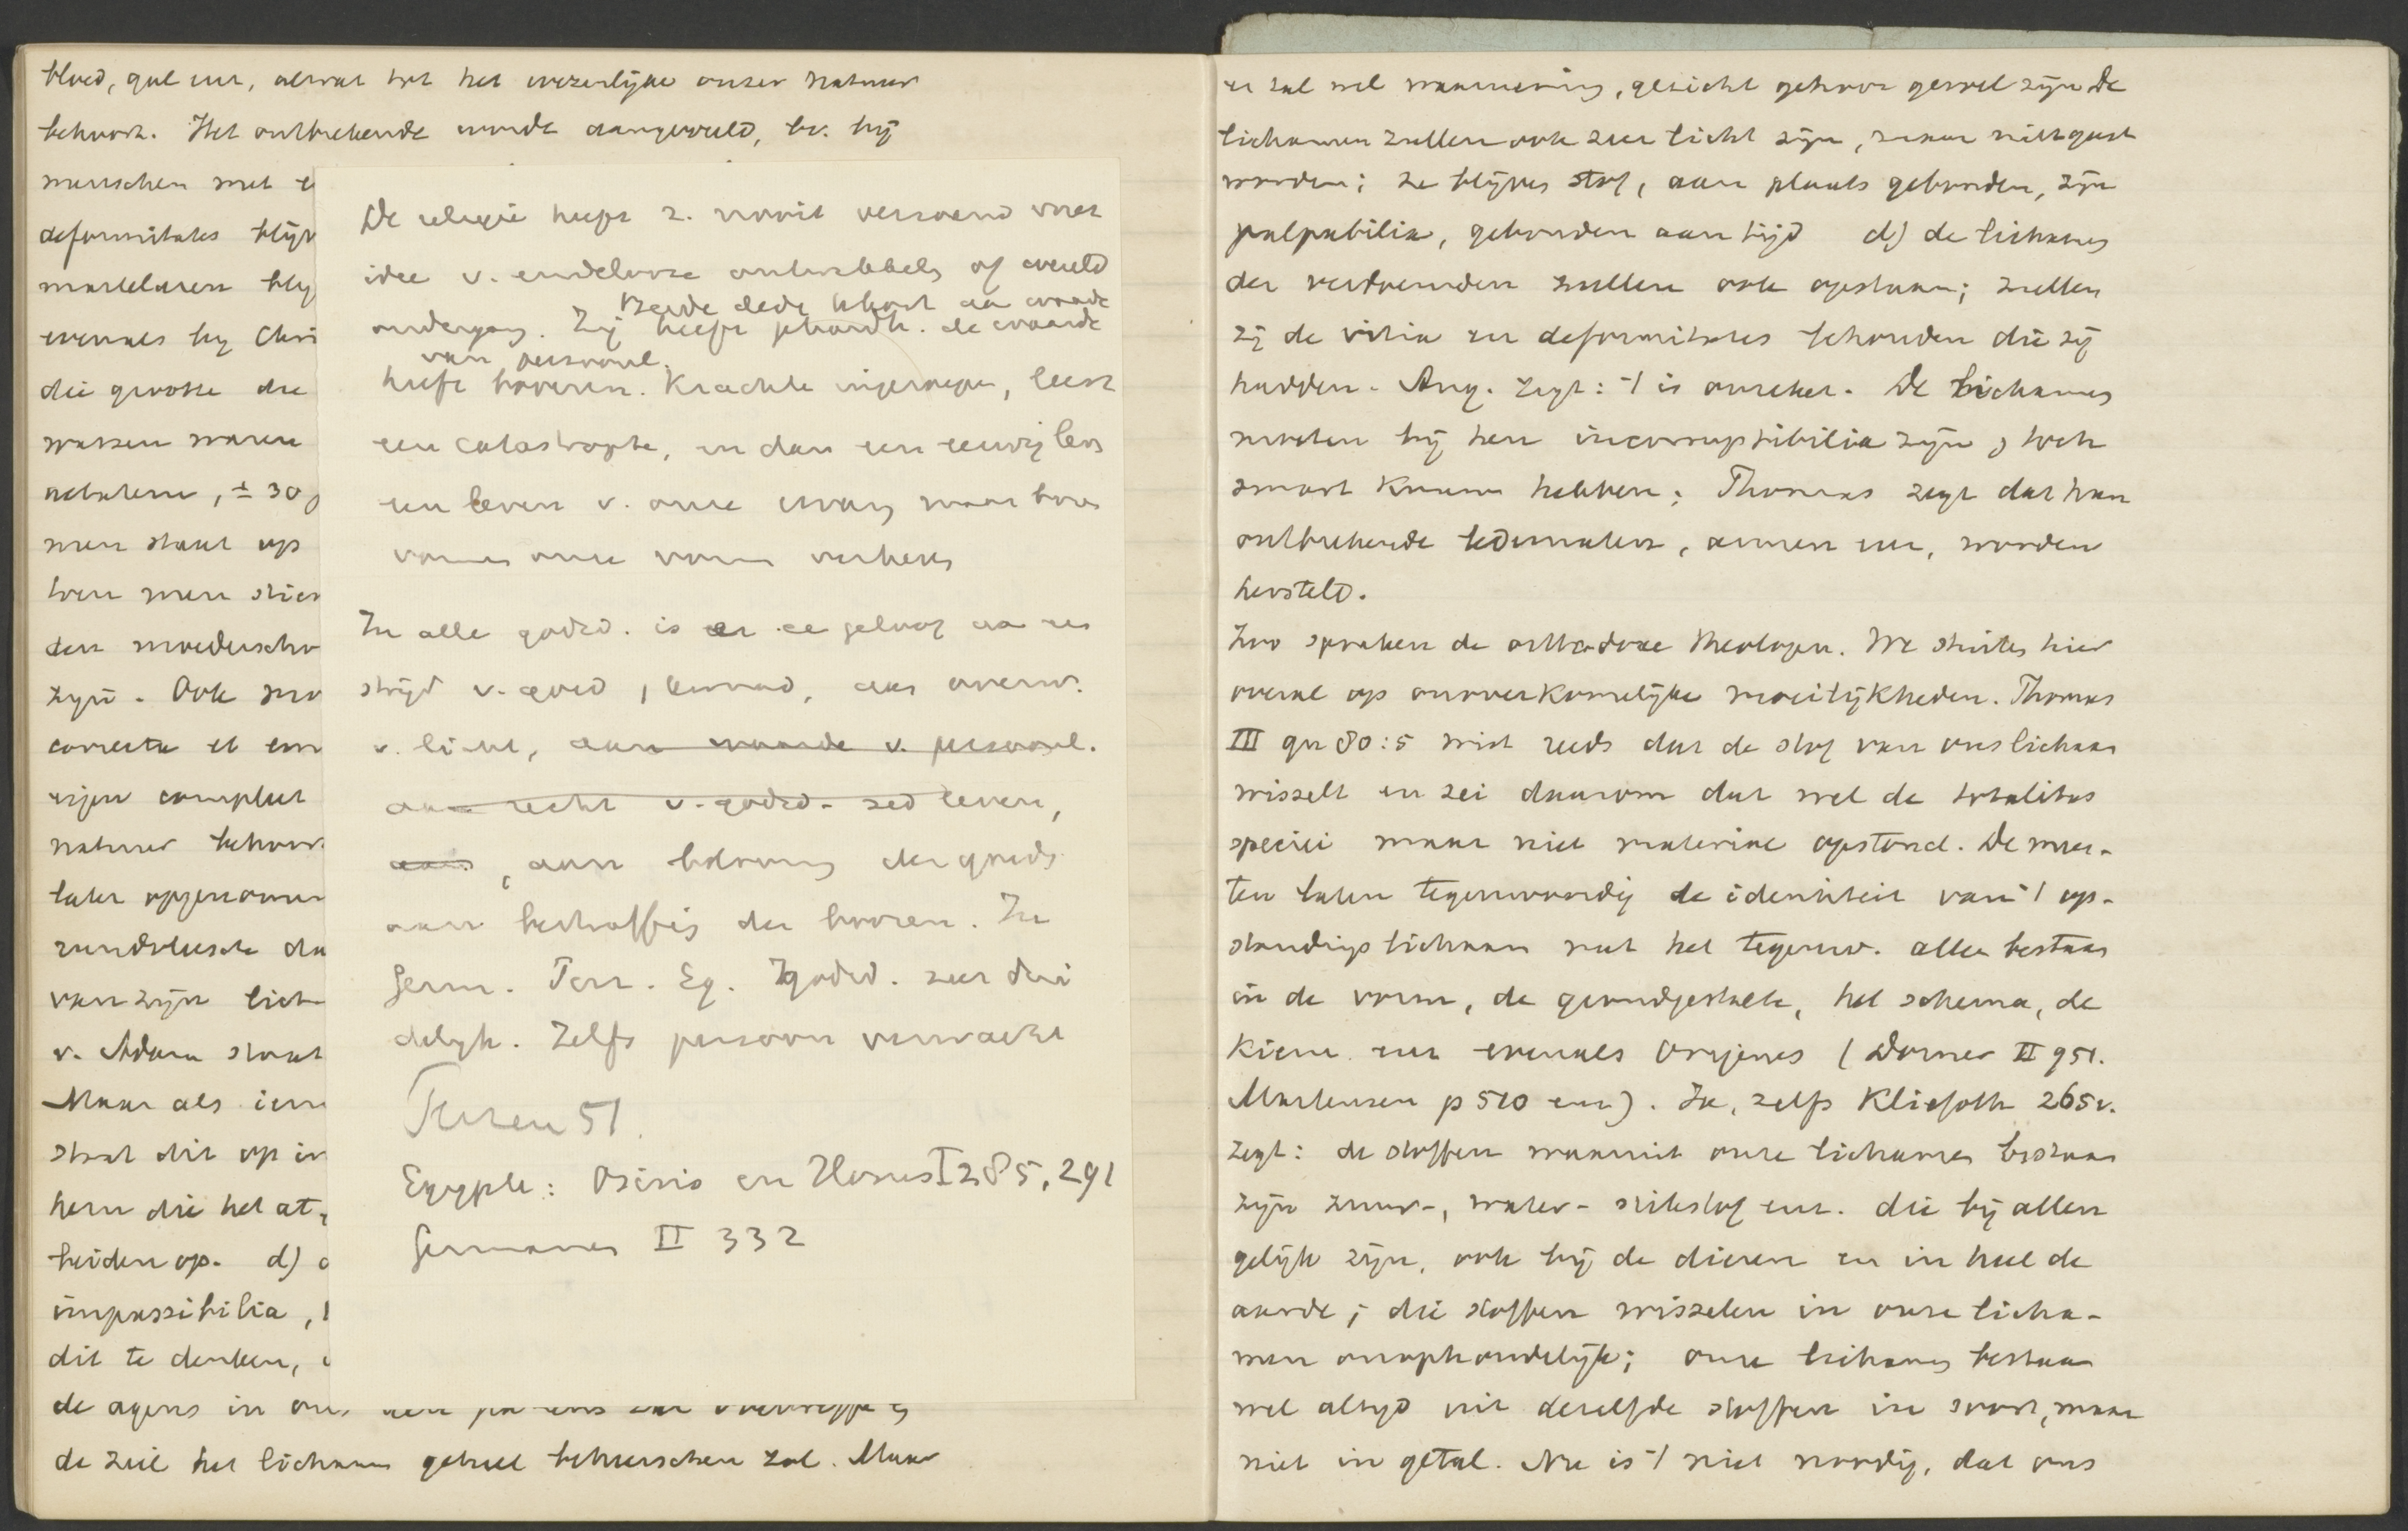 bloed, gal enz, alwat tot het wezenlijke onzer natuur
behoort. Het ontbrekende wordt aangevuld, bv. bij
menschen met
deformitates blijv
martelaren blij
evenals bij Chri
die grootte die
wassen waren
, ± 30 j
men staat op
toen men stier
den moederscho
zijn. Ook
correcta et em
complect
natuur behoor
later opgenomen
van zijn lich
v. Adam staat
Maar als iem
staat dit op in
hem die het at,
beiden op. d)
impassibilia,
dit te denken,
de agens in ons
de ziel het lichaam geheel beheerschen zal. Maar
De religie heeft z. nooit verzoend met
idee v. eindelooze ontwikkeling of wereld
Beide deden tekort aan waarde
ondergang. Zij heeft de waarde
van persoonl.
heeft boven. Krachten ingeroepen, leert
een catastrophe, en dan een eeuwig lev
een leven v. onze maar boven
vormen onze vorm verheven
In alle godsd. is er ee geloof aan een
strijd v. goed, kwaad, aan overw.
v. licht, aan waarde v. persoonl.
aan recht v. godsd. zed leven,
aan, aan belooning der goeds
aan bestraffing der boozen. In
Germ. Parz. Eg. godsd. zeer dui
delijk. Zelfs persoon verwacht
51.
Egypte: Osiris en Horus I 285, 291
Germanen II 332
er zal wel waarneming, gezicht gehoor gevoel zijn De
lichamen zullen ook zeer licht zijn, maar niet geest
worden; ze blijven stof, aan plaats gebonden, zijn
palpabilia, gebonden aan tijd d) de lichamen
der verdoemden zullen ook opstaan; zullen
zij de vitia en deformitates behouden die zij
hadden. Aug. zegt: 't is onzeker. De lichamen
moeten bij hen incorruptibilia zijn, toch
smart kunnen hebben; Thomas zegt dat hun
ontbrekende ledematen, armen enz, worden
hersteld.
Zoo spraken de orthodoxe theologen. We stuiten hier
overal op onoverkomelijke moeilijkheden. Thomas
III qu 80:5 wist reeds dat de stof van ons lichaam
wisselt en zei daarom dat wel de totalitas
speciei maar niet materiae opstond. De mees-
ten laten tegenwoordig de identiteit van 't op-
standingslichaam met het tegenw. alleen bestaan
in de vorm, de grondgestalte, het schema, de
kiem enz evenals Origenes (Dorner II 951.
Martensen p 510 enz). Ja, zelfs Kliefoth 265v.
zegt: de stoffen waaruit onze lichamen bestaan
zijn zuur-, water-, stikstof enz. die bij allen
gelijk zijn, ook bij de dieren en in heel de
aarde; die stoffen wisselen in onze licha-
men onophoudelijk; onze lichamen bestaan
wel altijd uit dezelfde stoffen in soort, maar
niet in getal. Nu is 't niet noodig, dat ons